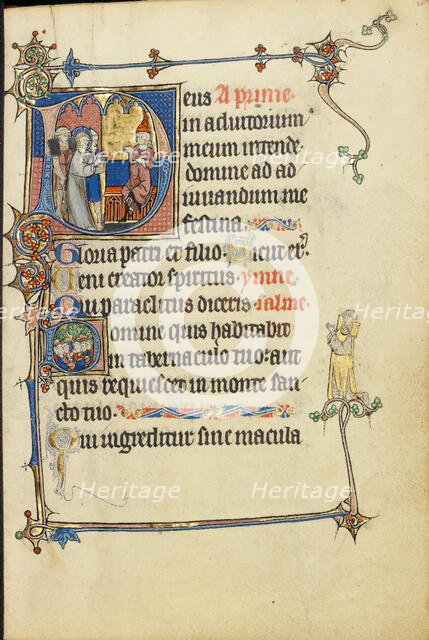 Deus A prime.
in adiutorium
meum intende.
domine ad ad
iuuandum me
festina
Gloria patri et filio Sicut er̾
Ueni creator spiritus ymne
Qui paraclitus diceris. salme
Domine quis habitabit
in tabernaculo tuo: aut
quis requiescet in monte san
cto tuo.
Qui ingreditur sine macula
Heritage
Heritage
Heritage
Heritage
Heritage
Heritage